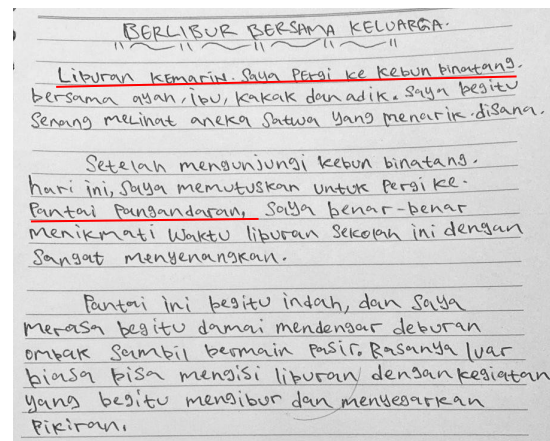 BERLIBUR BERSAMA KELUARGA.
Liburan kemarin. Saya pergi ke kebun binatang.
bersama ayah, ibu, kakak dan adik. Saya begitu
senang melihat aneka satwa yang menarik disana.
Setelah mengunjungi kebun binatang.
hari ini, saya memutuskan untuk pergi ke.
Pantai Pangandaran, saya benar-benar
menikmati waktu liburan sekolah ini dengan
sangat menyenangkan.
Pantai ini begitu indah, dan saya
merasa begitu damai mendengar deburan
ombak sambil bermain pasir. Rasanya luar
biasa bisa mengisi liburan dengan kegiatan
yang begitu mengibur dan menyegarkan
pikiran.